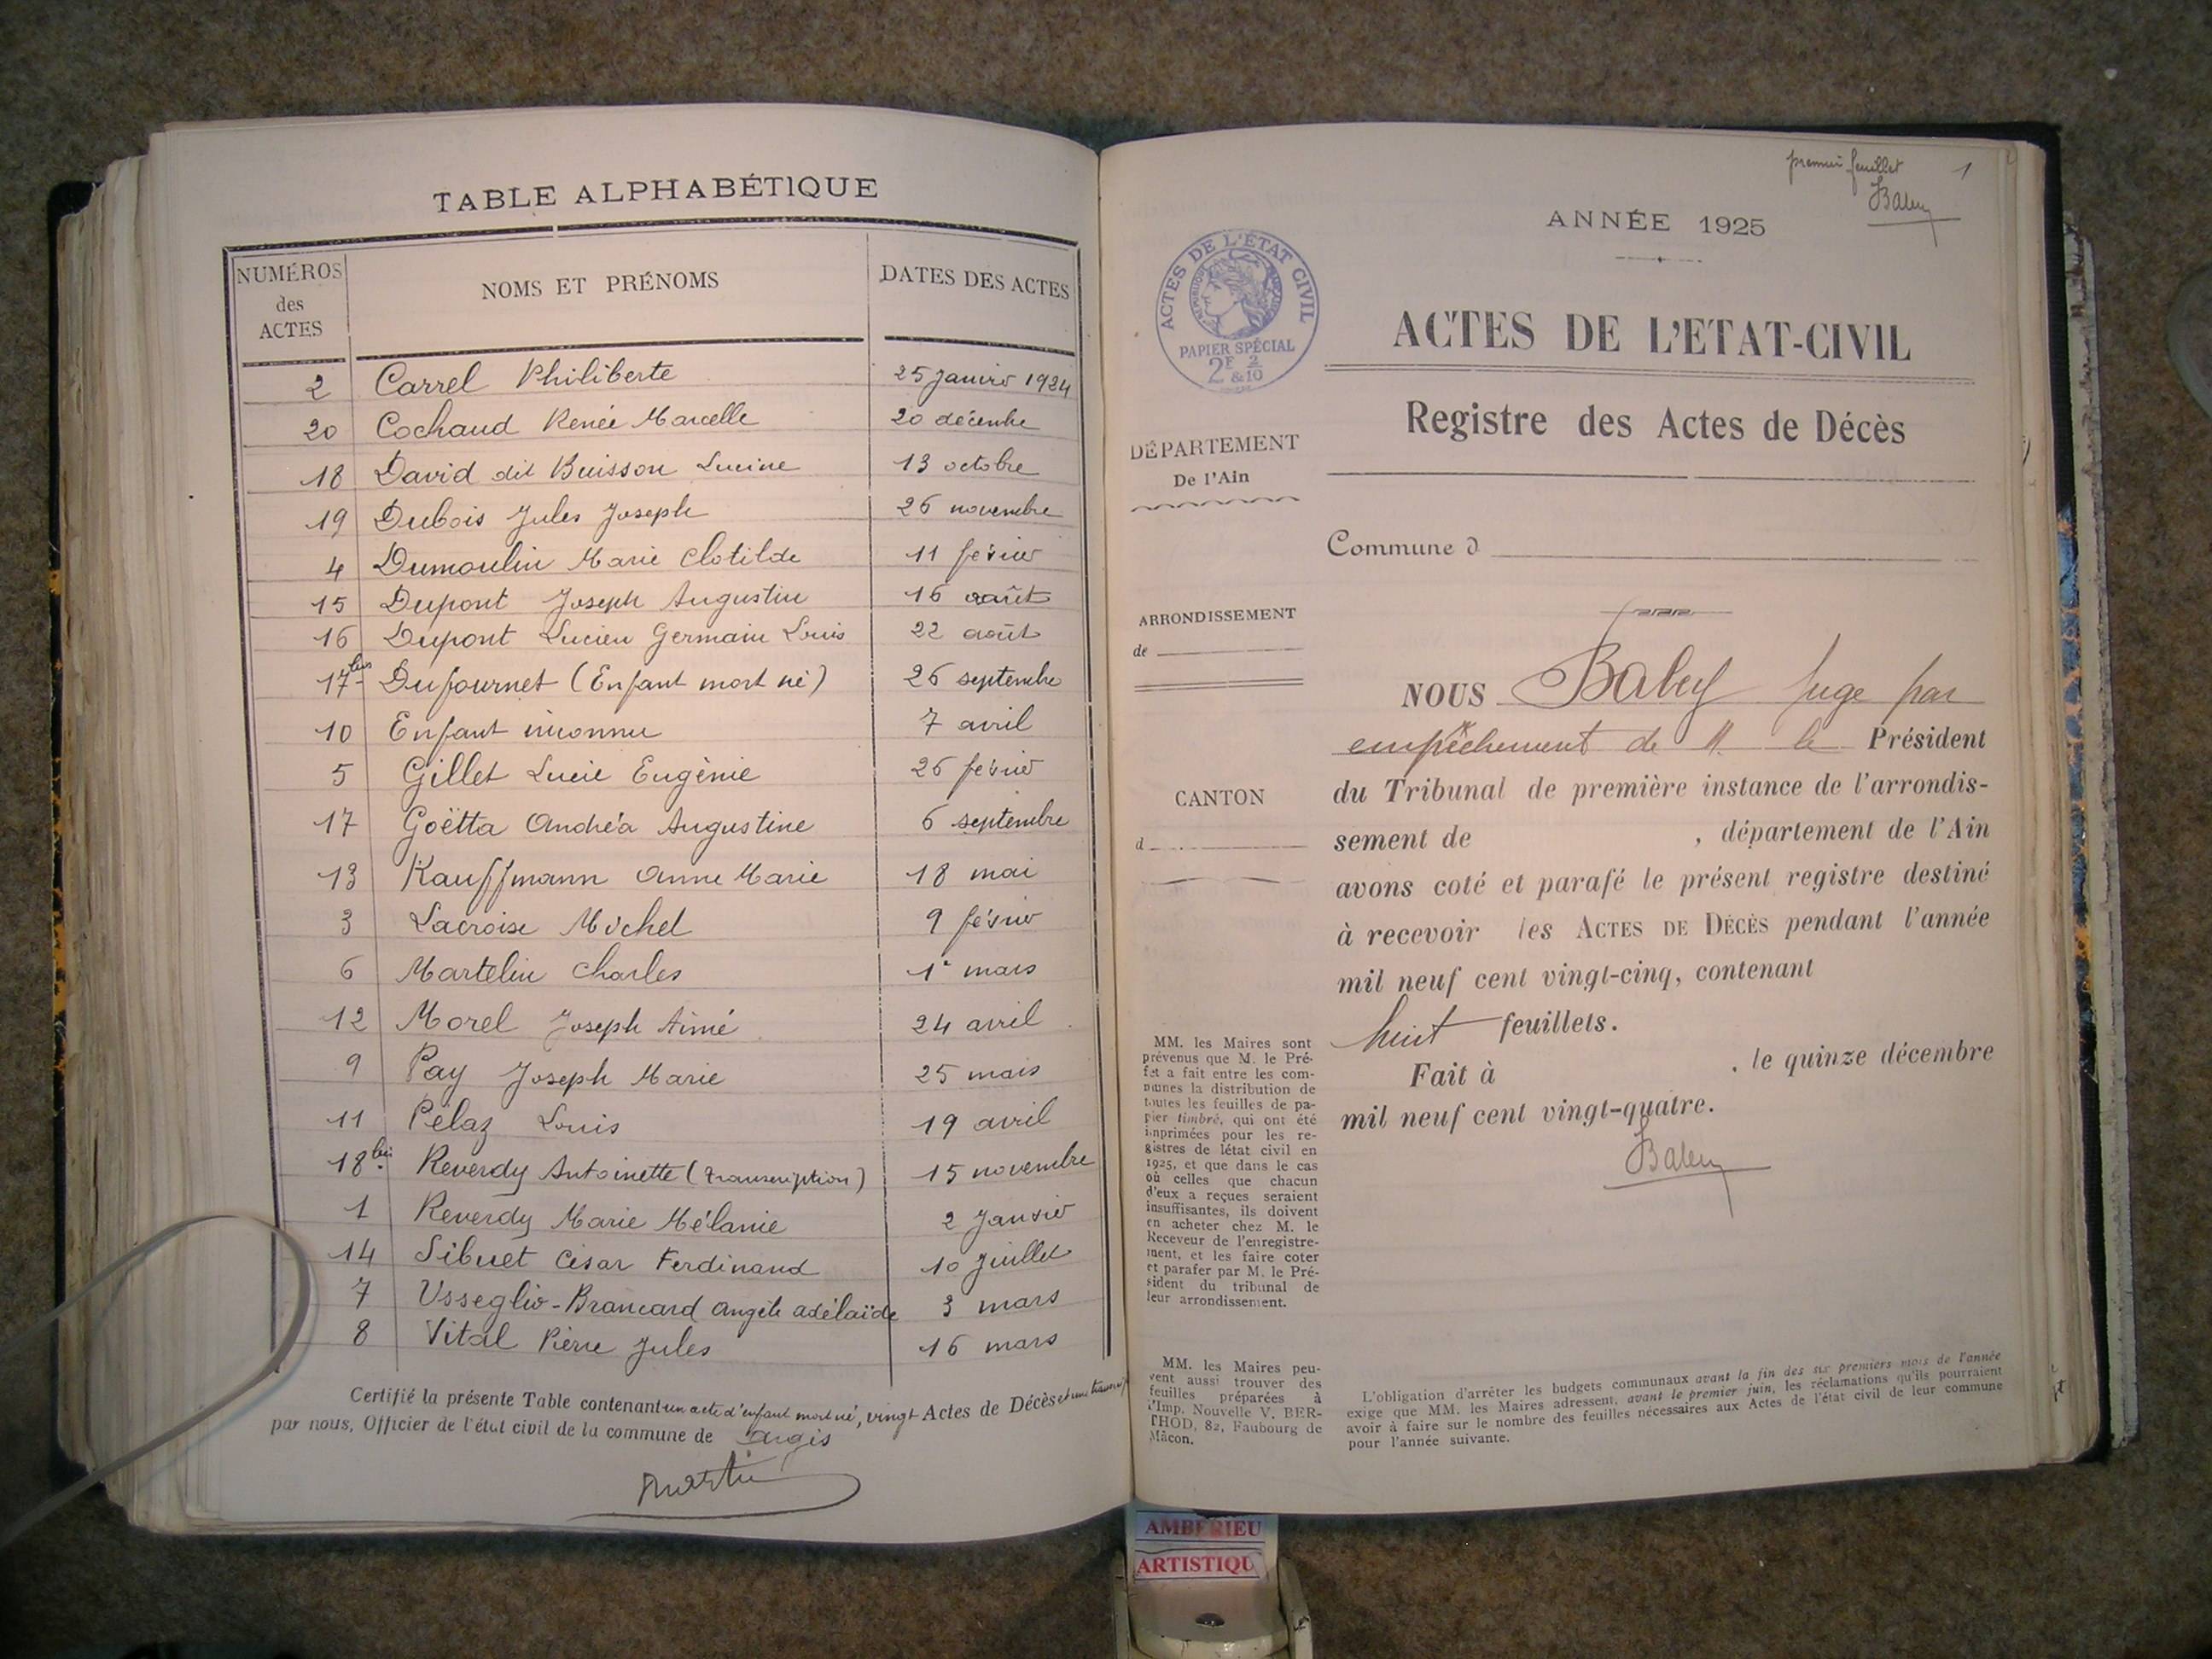 TABLE ALPHABÉTIQUE
NUMÉROS des ACTES
NOMS ET PRÉNOMS
DATES DES ACTES
2 Carrel Philiberte 25 Janvier 1924
20 Cochaud Renée Marcelle 20 décembre
18 David dit Buisson Lucine 13 octobre
19 Dubois Jules Joseph 26 novembre
4 Dumoulin Marie Clotilde 11 février
15 Dupont Joseph Augustin 16 août
16 Dupont Lucien Germain Louis 22 août
17 bis Dufournet (Enfant mort né) 26 septembre
10 Enfant inconnu 7 avril
5 Gillet Lucie Eugènie 26 février
17 Goëtta Andréa Augustine 6 septembre
13 Kauffmann Anne Marie 18 mai
3 Lacroise Michel 9 février
6 Martelin Charles 1er mars
12 Morel Joseph Aimé 24 avril
9 Pay Joseph Marie 25 mars
11 Pélaz Louis 19 avril
18 bis Reverdy Antoinette (transcription) 15 novembre
1 Reverdy Marie Mélanie 2 Janvier
14 Sibuet César Ferdinand 10 Juillet
7 Usseglio-Brancard Angèle adélaïde 3 mars
8 Vital Pierre Jules 16 mars
Certifié la présente Table contenant un acte d'enfant mort né, vingt Actes de Décès et une
par nous, Officier de l'état civil de la commune de Argis
Martin
premier feuillet 1
Baley
ANNÉE 1925
ACTES DE L'ÉTAT CIVIL
RÉPUBLIQUE FRANÇAISE
PAPIER SPÉCIAL
2F 2
&10
ACTES DE L'ETAT-CIVIL
Registre des Actes de Décès
DÉPARTEMENT
De l'Ain
Commune d
ARRONDISSEMENT
de
CANTON
d
NOUS Baley Juge par
empêchement de M. le Président
du Tribunal de première instance de l'arrondis-
sement de , département de l'Ain
avons coté et parafé le présent registre destiné
à recevoir les ACTES DE DÉCÈS pendant l'année
mil neuf cent vingt-cinq, contenant
huit feuillets.
Fait à , le quinze décembre
mil neuf cent vingt-quatre.
Baley
MM. les Maires sont
prévenus que M. le Pré-
fet a fait entre les com-
munes la distribution de
toutes les feuilles de pa-
pier timbré, qui ont été
imprimées pour les re-
gistres de létat civil en
1925, et que dans le cas
où celles que chacun
d'eux a reçues seraient
insuffisantes, ils doivent
en acheter chez M. le
Receveur de l'enregistre-
ment, et les faire coter
et parafer par M. le Pré-
sident du tribunal de
leur arrondissement.
MM. les Maires peu-
vent aussi trouver des
feuilles préparées à
l'Imp. Nouvelle V. BER-
THOD, 82, Faubourg de
Mâcon.
L'obligation d'arrêter les budgets communaux avant la fin des six premiers mois de l'année
exige que MM. les Maires adressent, avant le premier juin, les réclamations qu'ils pourraient
avoir à faire sur le nombre des feuilles nécessaires aux Actes de l'état civil de leur commune
pour l'année suivante.
AMBERIEU
ARTISTIQU